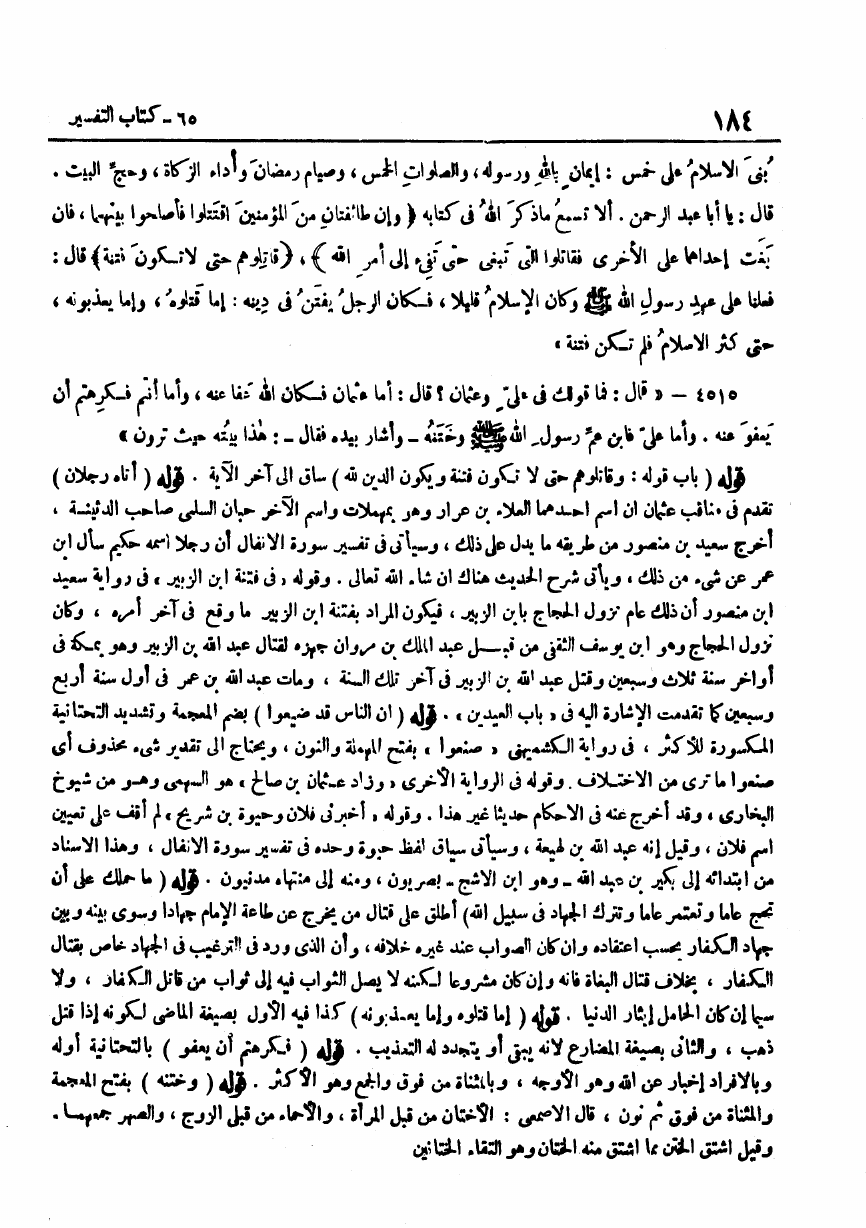 ١٨٤ ٦٥ - كتاب التفسير
بُنىَ الاسلامُ على خمس : إيمانٍ بالله ورسوله ، والصلواتِ الخمس ، وصيام رمضانَ وأداء الزكاة ، وحجِّ البيت .
قال : يا أبا عبد الرحمن . ألا تسمعُ ماذكرَ اللهُ فى كتابه ﴿ وإن طائفتانِ منَ المؤمنينَ اقتَتلوا فأصلحوا بينَهما ، فان
بَغَت إحداهما على الأخرى فقاتلوا التى تَبغى حتى تَفِىء إلى أمرِ الله ﴾ ، ﴿ قاتِلوهم حتى لاتكونَ فتنة ﴾ قال :
فعلنا على عهدِ رسولِ الله ﷺ وكان الإسلامُ قليلا ، فكان الرجلُ يفتَنُ فى دِينه : إما قَتلوهُ ، وإما يعذبونه ،
حتى كثر الاسلامُ فلم تكن فتنة »
٤٥١٥ - « قال : فما قولك فى علىّ وعثمان ؟ قال : أما عثمان فكان الله عَفا عنه ، وأما أنتم فكرِهتم أن
يَعفوَ عنه . وأما علىٌ فابن عمِّ رسولِ الله ﷺ وخَتَنُه - وأشار بيده فقال - : هٰذا بيتُه حيث ترون »
قوله ( باب قوله : وقاتلوهم حتى لا تكون فتنة ويكون الدين لله ) ساق الى آخر الآية . قوله ( أتاه رجلان )
تقدم فى مناقب عثمان ان اسم احدهما العلاء بن عرار وهو بمهملات واسم الآخر حبان السلمى صاحب الدثينة ،
أخرج سعيد بن منصور من طريقه ما يدل على ذلك ، وسيأتى فى تفسير سورة الانفال أن رجلا اسمه حكيم سأل ابن
عمر عن شىء من ذلك ، ويأتى شرح الحديث هناك ان شاء الله تعالى . وقوله « فى فتنة ابن الزبير » فى رواية سعيد
ابن منصور أن ذلك عام نزول الحجاج بابن الزبير ، فيكون المراد بفتنة ابن الزبير ما وقع فى آخر أمره ، وكان
نزول الحجاج وهو ابن يوسف الثقفى من قبل عبد الملك بن مروان جهزه لقتال عبد الله بن الزبير وهو بمكة فى
أواخر سنة ثلاث وسبعين وقتل عبد الله بن الزبير فى آخر تلك السنة ، ومات عبد الله بن عمر فى أول سنة أربع
وسبعين كما تقدمت الإشارة اليه فى « باب العيدين » . قوله ( ان الناس قد ضيعوا ) بضم المعجمة وتشديد التحتانية
المكسورة للأكثر ، فى رواية الكشميهنى « صنعوا » بفتح المهملة والنون ، ويحتاج الى تقدير شىء محذوف أى
صنعوا ما ترى من الاختلاف . وقوله فى الرواية الأخرى « وزاد عثمان بن صالح » هو السهمى وهو من شيوخ
البخارى ، وقد أخرج عنه فى الاحكام حديثا غير هذا . وقوله « أخبرنى فلان وحيوة بن شريح » لم أقف على تعيين
اسم فلان ، وقيل إنه عبد الله بن لهيعة ، وسيأتى سياق لفظ حيوة وحده فى تفسير سورة الانفال ، وهذا الاسناد
من ابتدائه إلى بكير بن عبد الله - وهو ابن الاشج - بصريون ، ومنه إلى منتهاه مدنيون . قوله ( ما حملك على أن
تحج عاما وتعتمر عاما وتترك الجهاد فى سبيل الله ) أطلق على قتال من يخرج عن طاعة الإمام جهادا وسوى بينه وبين
جهاد الكفار بحسب اعتقاده وان كان الصواب عند غيره خلافه ، وأن الذى ورد فى الترغيب فى الجهاد خاص بقتال
الكفار ، بخلاف قتال البغاة فانه وإن كان مشروعا لكنه لا يصل الثواب فيه إلى ثواب من قاتل الكفار ، ولا
سيما إن كان الحامل إيثار الدنيا . قوله ( إما قتلوه وإما يعذبونه ) كذا فيه الأول بصيغة الماضى لكونه إذا قتل
ذهب ، والثانى بصيغة المضارع لانه يبقى أو يتجدد له التعذيب . قوله ( فكرهتم أن يعفو ) بالتحتانية أوله
وبالافراد إخبار عن الله وهو الأوجه ، وبالمثناة من فوق والجمع وهو الأكثر . قوله ( وختنه ) بفتح المعجمة
والمثناة من فوق ثم نون ، قال الاصمعى : الأختان من قبل المرأة ، والأحماء من قبل الزوج ، والصهر جمعهما .
وقيل اشتق الختن مما اشتق منه الختان وهو التقاء الختانين